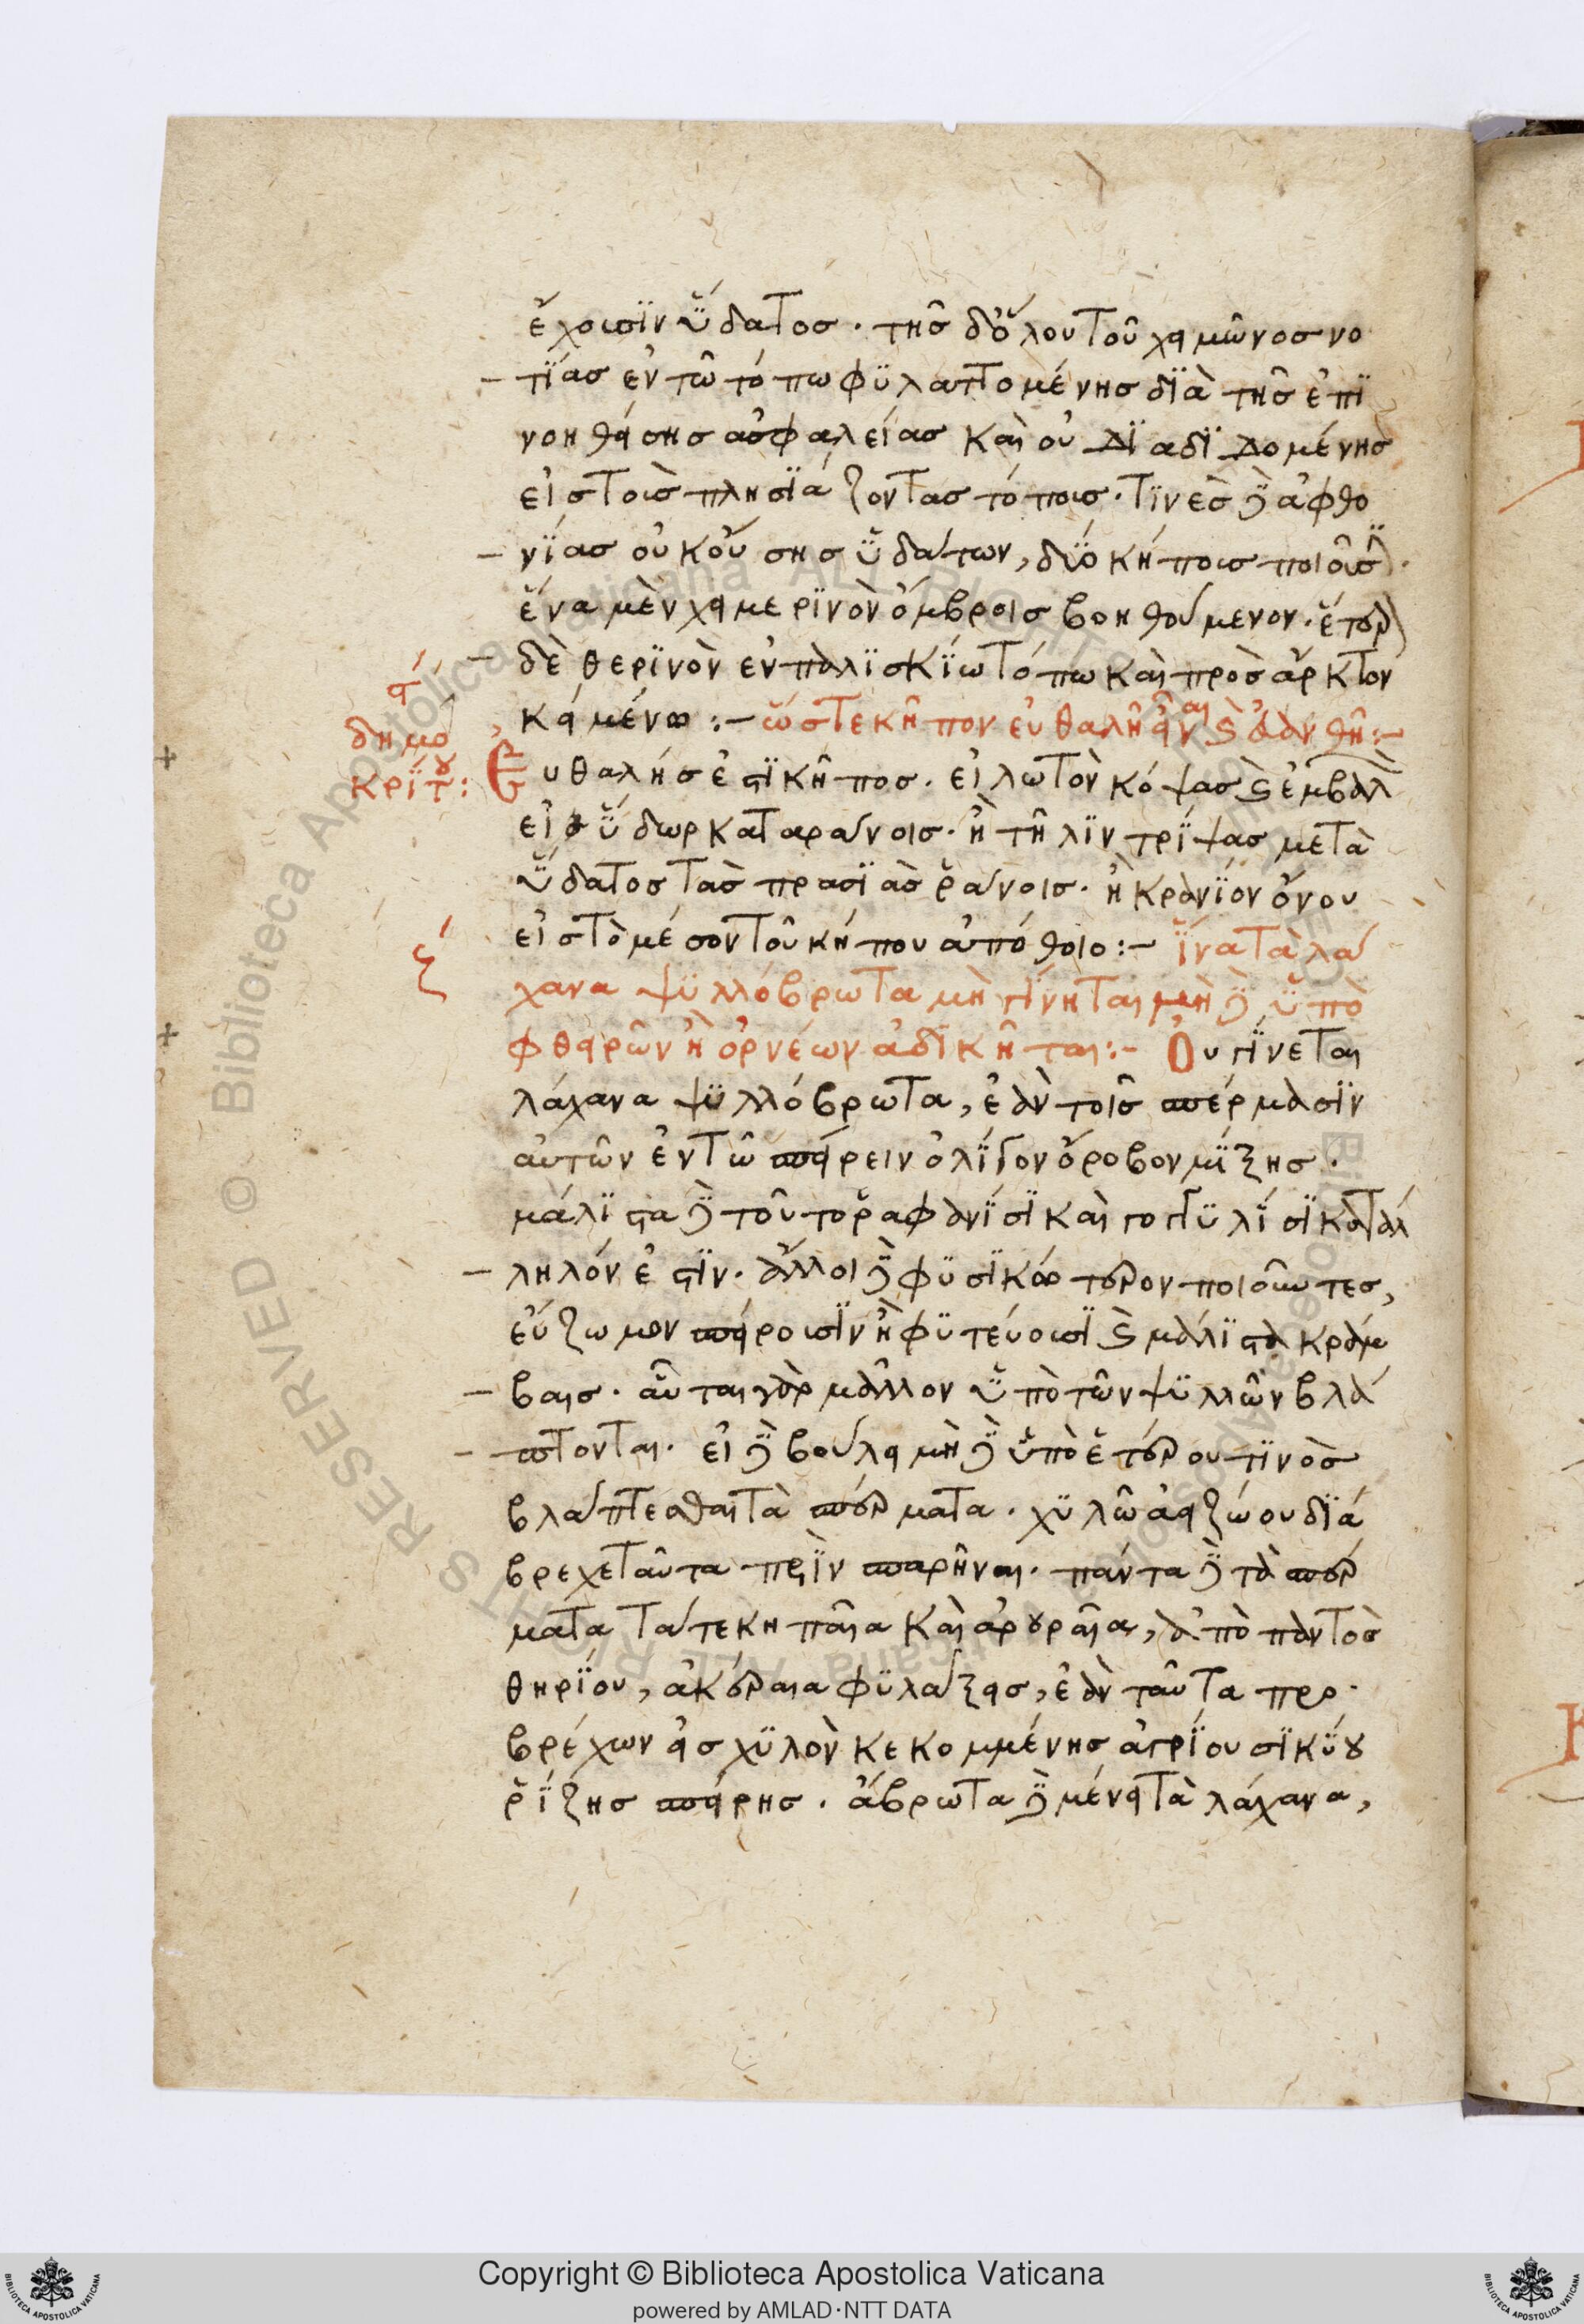 ἔχουσιν ὕδατος. τῆς δι' ὅλου τοῦ χειμῶνος νο
τίας ἐν τῶ τόπω φυλαττομένης διὰ τῆς ἐπι
νοηθείσης ἀσφαλείας καὶ οὐ διαδιδομένης
εἰς τοὺς πλησιάζοντας τόπους. τινὲς δὲ ἀφθο
νίας οὐκ οὔσης ὑδάτων, δύο κήπους ποιοῦσι.
ἕνα μὲν χειμερινὸν ὄμβροις βοηθούμενον. ἕτερον
δὲ θερινὸν ἐν παλισκίω τόπω καὶ πρὸς ἄρκτον
κειμένω :– ὥστε κῆπον εὐθαλῆ εἶναι καὶ εὐανθῆ :–
ϛ′
δημο
κρίτου :
Εὐθαλὴς ἔσται κῆπος. εἰ λωτὸν κόψας καὶ ἐμβαλὼν
εἰς ὕδωρ καταραίνοις. ἢ τῆλιν τρίψας μετὰ
ὕδατος τὰς πρασιὰς ῥαίνοις. ἢ κρανίον ὄνου
εἰς τὸ μέσον τοῦ κήπου ἀπόθοιο :– ἵνα τὰ λά
ζ′
χανα ψυλλόβρωτα μὴ γίνηται μὴ δὲ ὑπὸ
φθειρῶν ἢ ὀρνέων ἀδικῆται :– Οὐ γίνεται
λάχανα ψυλλόβρωτα, ἐὰν τοῖς σπέρμασιν
αὐτῶν ἐν τῶ σπείρειν ὀλίγον ὄροβον μίξης.
μάλιστα δὲ τοῦτο ῥαφανίσι καὶ γογγυλίσι κατάλ
ληλόν ἐστιν. ἄλλοι δὲ φυσικώτερον ποιοῦντες,
εὔζωμον σπείρουσιν ἢ φυτεύουσι καὶ μάλιστα κράμ
βαις. αὗται γὰρ μᾶλλον ὑπὸ τῶν ψυλλῶν βλά
πτονται. εἰ δὲ βούλει μὴ δὲ ὑπὸ ἑτέρου τινὸς
βλάπτεσθαι τὰ σπέρματα. χυλῶ ἀειζώου διά
βρεχε ταῦτα πρὶν σπαρῆναι. πάντα δὲ τὰ σπέρ
ματα τά τε κηπαῖα καὶ ἀρουραῖα, ἀπὸ παντὸς
θηρίου, ἀκέραια φυλάξεις, ἐὰν ταῦτα προ
βρέχων εἰς χυλὸν κεκομμένης ἀγρίου σικύου
ῥίζης σπείρης. ἄβρωτα δὲ μένει τὰ λάχανα,
Copyright © Biblioteca Apostolica Vaticana
powered by AMLAD·NTT DATA